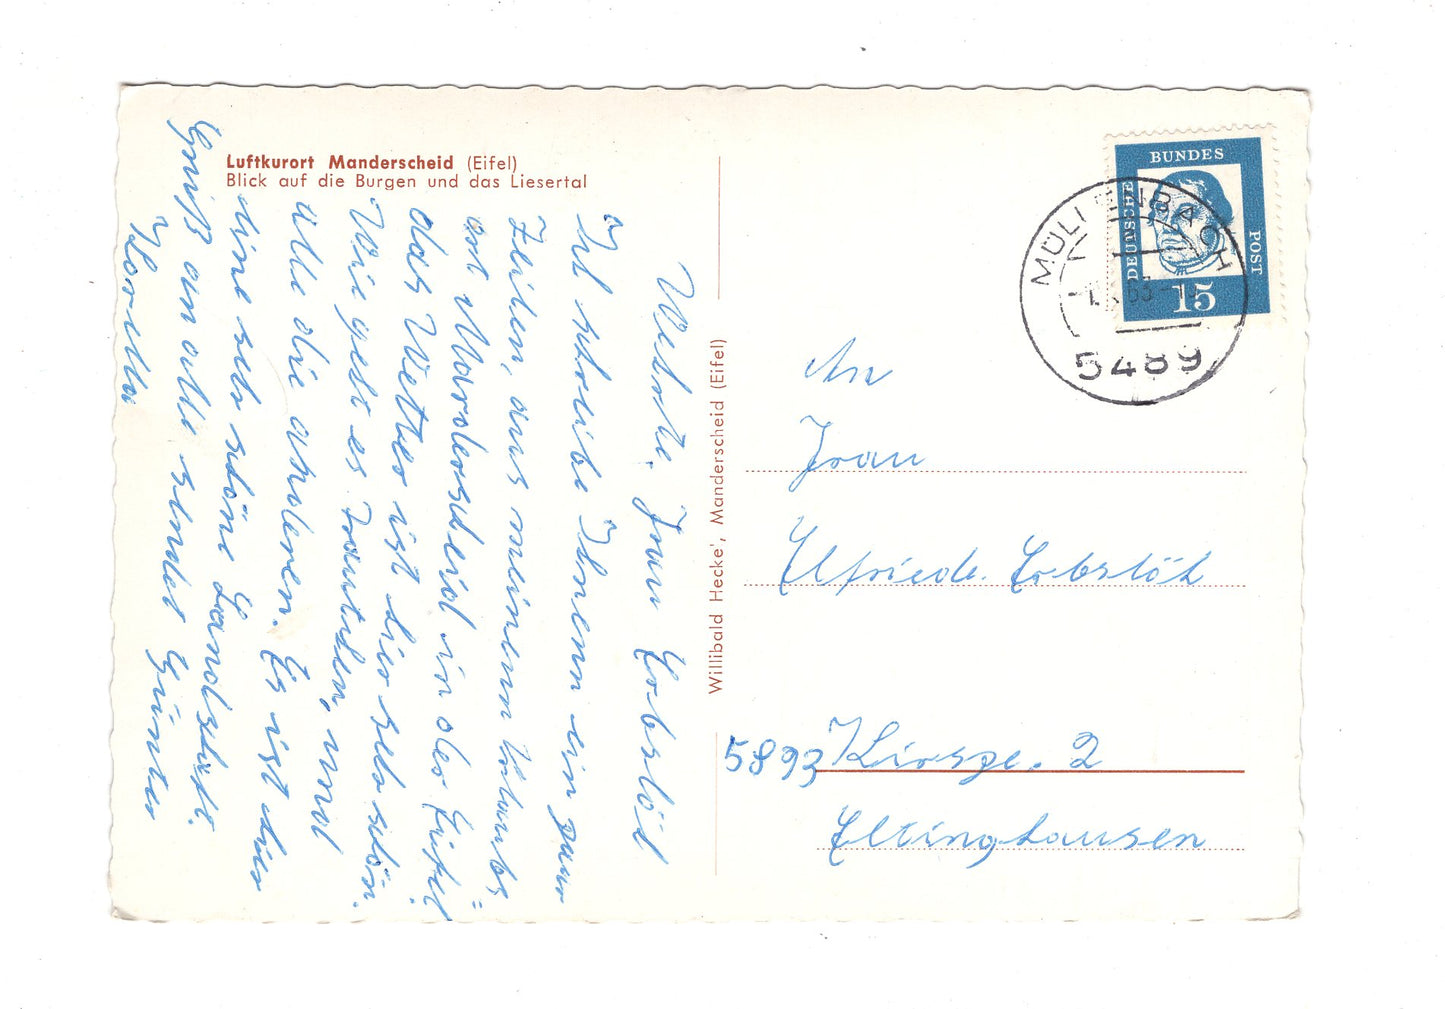 Luftkurort Manderscheid (Eifel)
Blick auf die Burgen und das Liesertal
Werte Frau Erbslöh
Ich schreibe Ihnenn ein paar
Zeilen, aus meinenn Urlaubs=
ort Manderscheid in der Eifel.
das Wetter ist hier sehr schön.
Wie geht es Frautchen, und
alle die anderen. Es ist hier
eine sehr schöne Landschaft.
Gruß an alle sendet Günter
Horilla
Willibald Hecke', Manderscheid (Eifel)
DEUTSCHE
BUNDES
POST
15
MÜLLENBACH
63
5489
An
Frau
Elfriede. Erbslöh
5893 Kierspe. 2
Eltinghausen